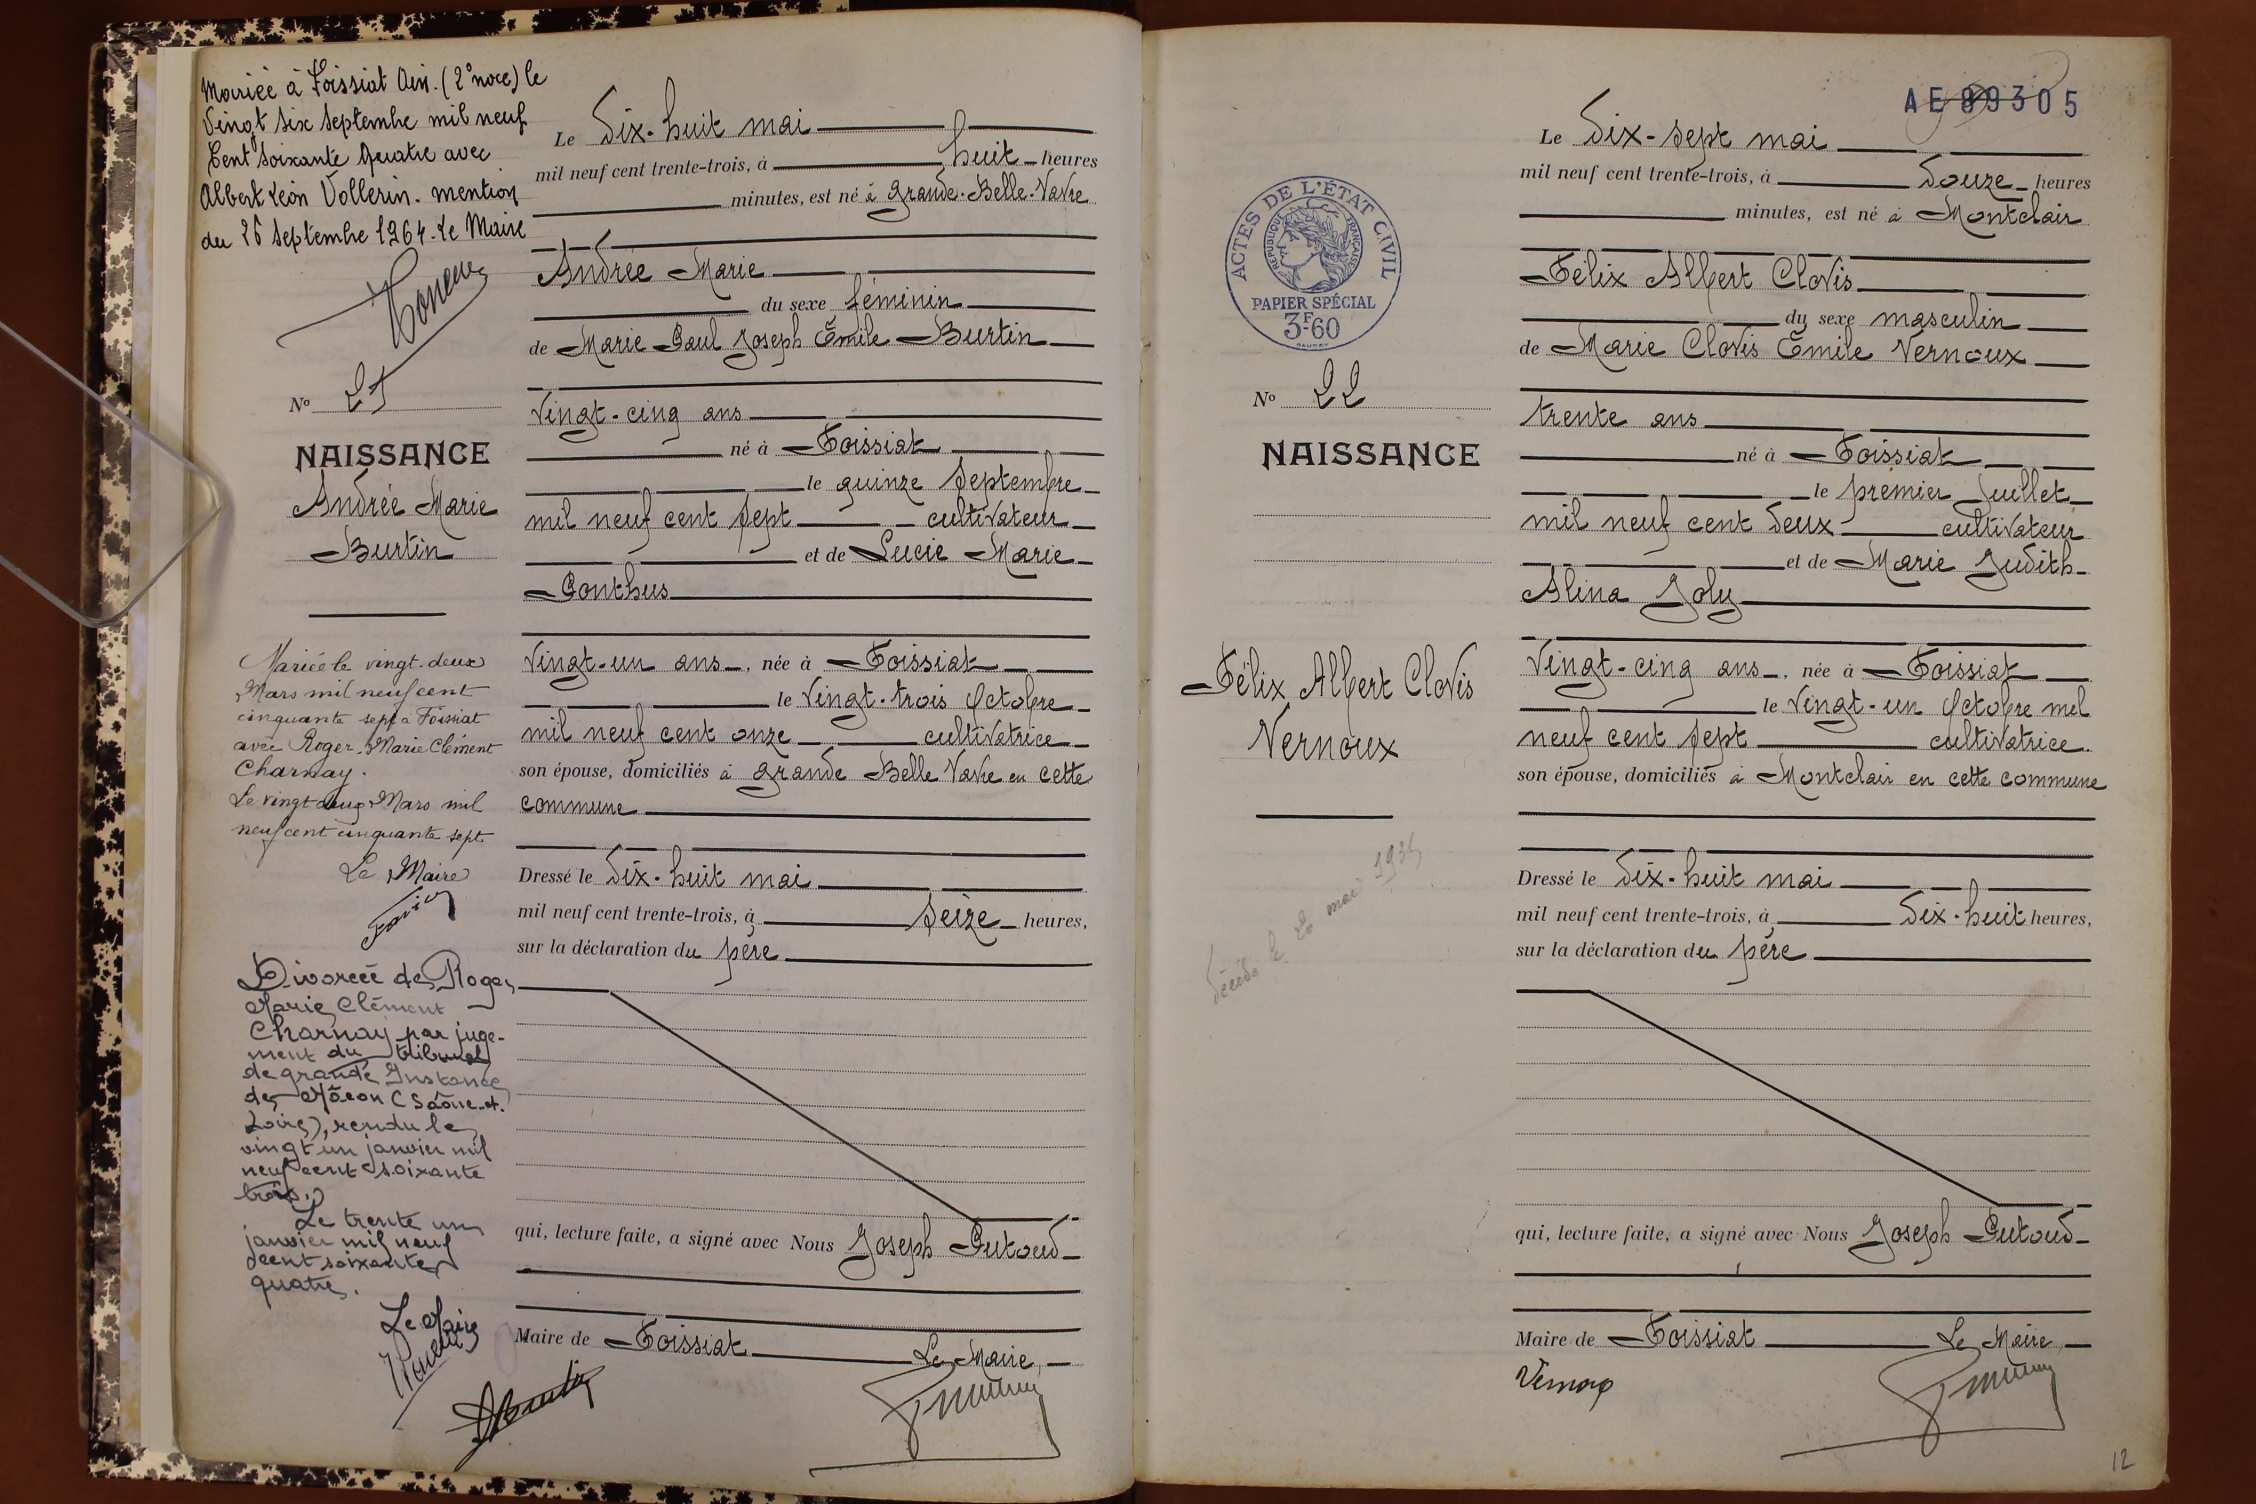 Mariée à Foissiat Ain. (2° noce) le
Vingt six septembre mil neuf
Cent soixante quatre avec
Albert Léon Vollerin. mention
du 26 septembre 1964. Le Maire
No 21
NAISSANCE
Andrée Marie
Burtin
Mariée le vingt-deux
Mars mil neuf cent
cinquante sept à Foissiat
avec Roger Marie Clément
Charnay.
Le vingt deux Mars mil
neuf cent cinquante sept
Le Maire
Divorcée de Roger
Marie Clément
Charnay par juge-
ment du tribunal
de grande Instance
de Mâcon (Saône-et-
Loire), rendu le
vingt un janvier mil
neuf cent soixante
trois.
Le trente un
janvier mil neuf
cent soixante
quatre.
Le Maire
Le Dix-huit mai
mil neuf cent trente-trois, à huit heures
minutes, est né à Grande-Belle-Vavre
Andrée Marie
du sexe féminin
de Marie Paul Joseph Émile Burtin
Vingt-cinq ans
né à Foissiat
le quinze Septembre
mil neuf cent sept cultivateur
et de Lucie Marie
Ponthus
Vingt-un ans, née à Foissiat
le Vingt-trois Octobre
mil neuf cent onze cultivatrice
son épouse, domiciliés à Grande Belle Vavre en cette
commune
Dressé le Dix-huit mai
mil neuf cent trente-trois, à seize heures,
sur la déclaration du père
qui, lecture faite, a signé avec Nous Joseph Putoud
Maire de Foissiat Le Maire,
AE 89305
ACTES DE L'ÉTAT CIVIL
RÉPUBLIQUE FRANÇAISE
PAPIER SPÉCIAL
3F-60
No 22
NAISSANCE
Félix Albert Clovis
Vernoux
Décédé le 20 mai
Le Dix-sept mai
mil neuf cent trente-trois, à Douze heures
minutes, est né à Montclair
Félix Albert Clovis
du sexe masculin
de Marie Clovis Émile Vernoux
trente ans
né à Foissiat
le premier Juillet
mil neuf cent deux cultivateur
et de Marie Judith
Alina Joly
Vingt-cinq ans, née à Foissiat
le Vingt-un Octobre mil
neuf cent sept cultivatrice.
son épouse, domiciliés à Montclair en cette commune
Dressé le Dix-huit mai
mil neuf cent trente-trois, à Dix-huit heures,
sur la déclaration du père
qui, lecture faite, a signé avec Nous Joseph Putoud
Maire de Foissiat Le Maire,
Vernoux
12